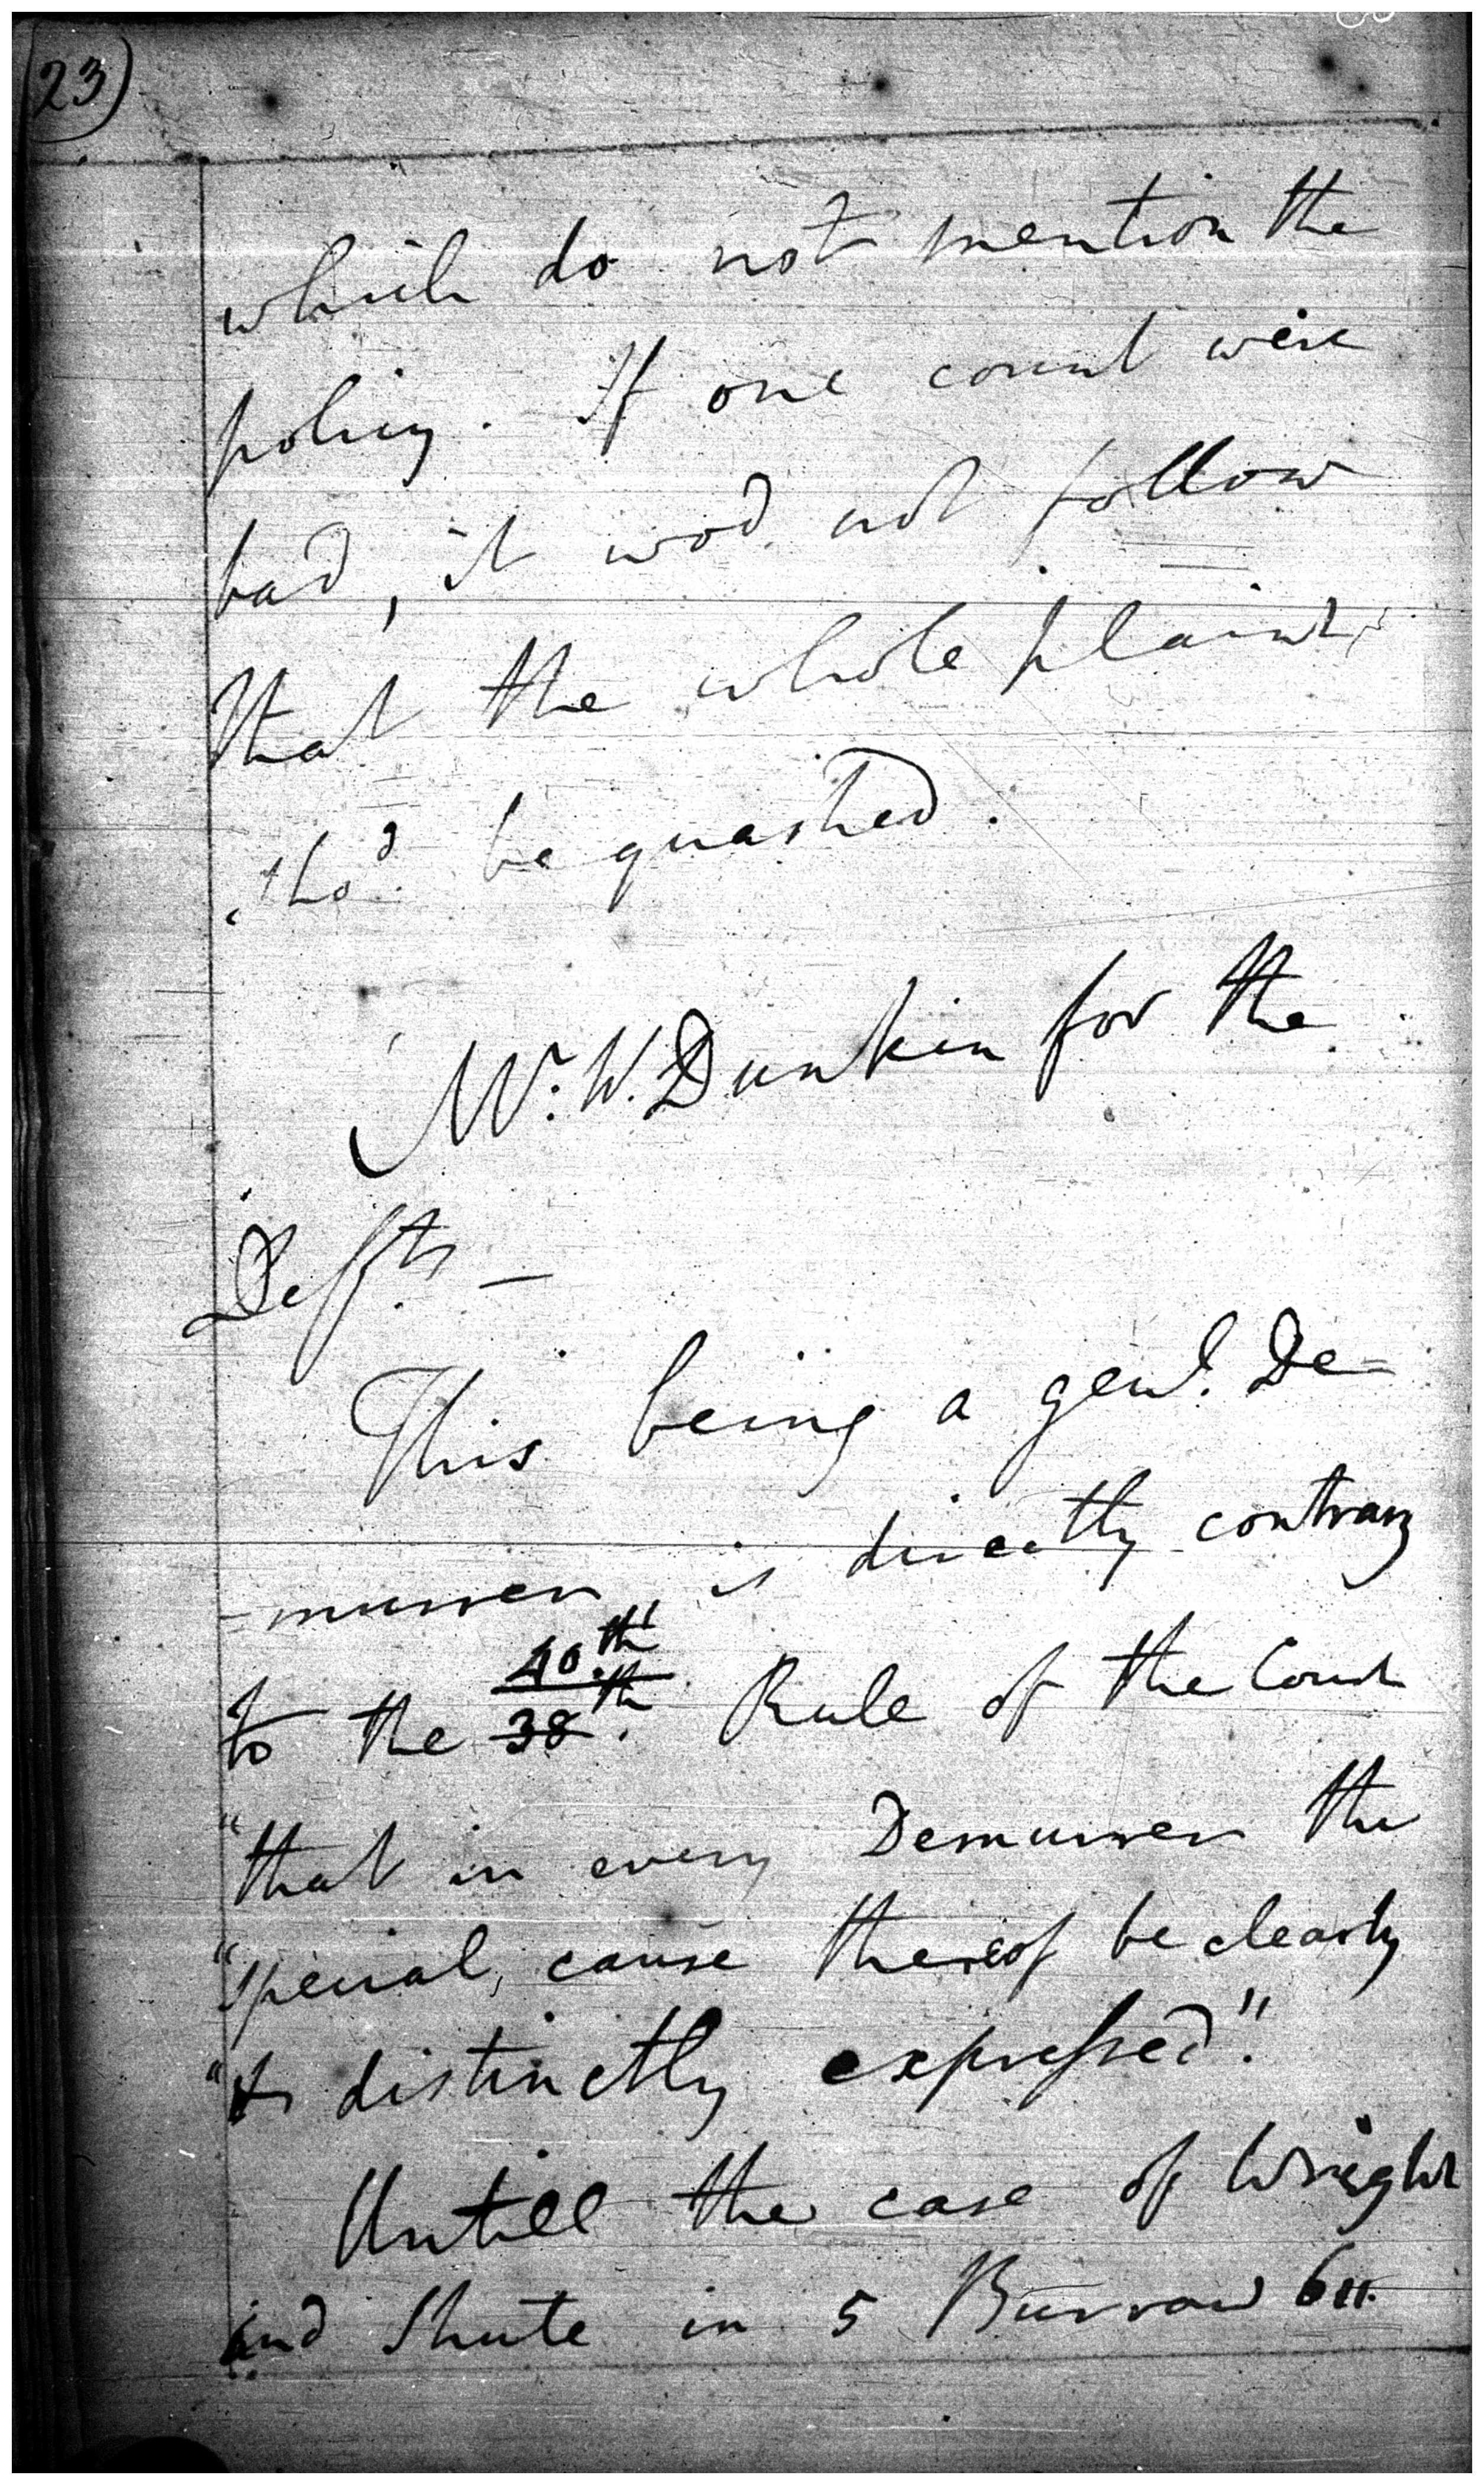 23)
which do not mention the
policy. If one count were
bad, it wod. not follow
that the whole plaint
shod. be quashed.
Mr. W. Dunkin for the
Defts. —
This being a genl. De-
-murrer, is directly contrary
to the 40.th
38th. Rule of the Court
"that in every Demurrer the
"special, cause thereof be clearly
"& distinctly expressed".
Untill the case of Wright
and Shute in 5 Burrow